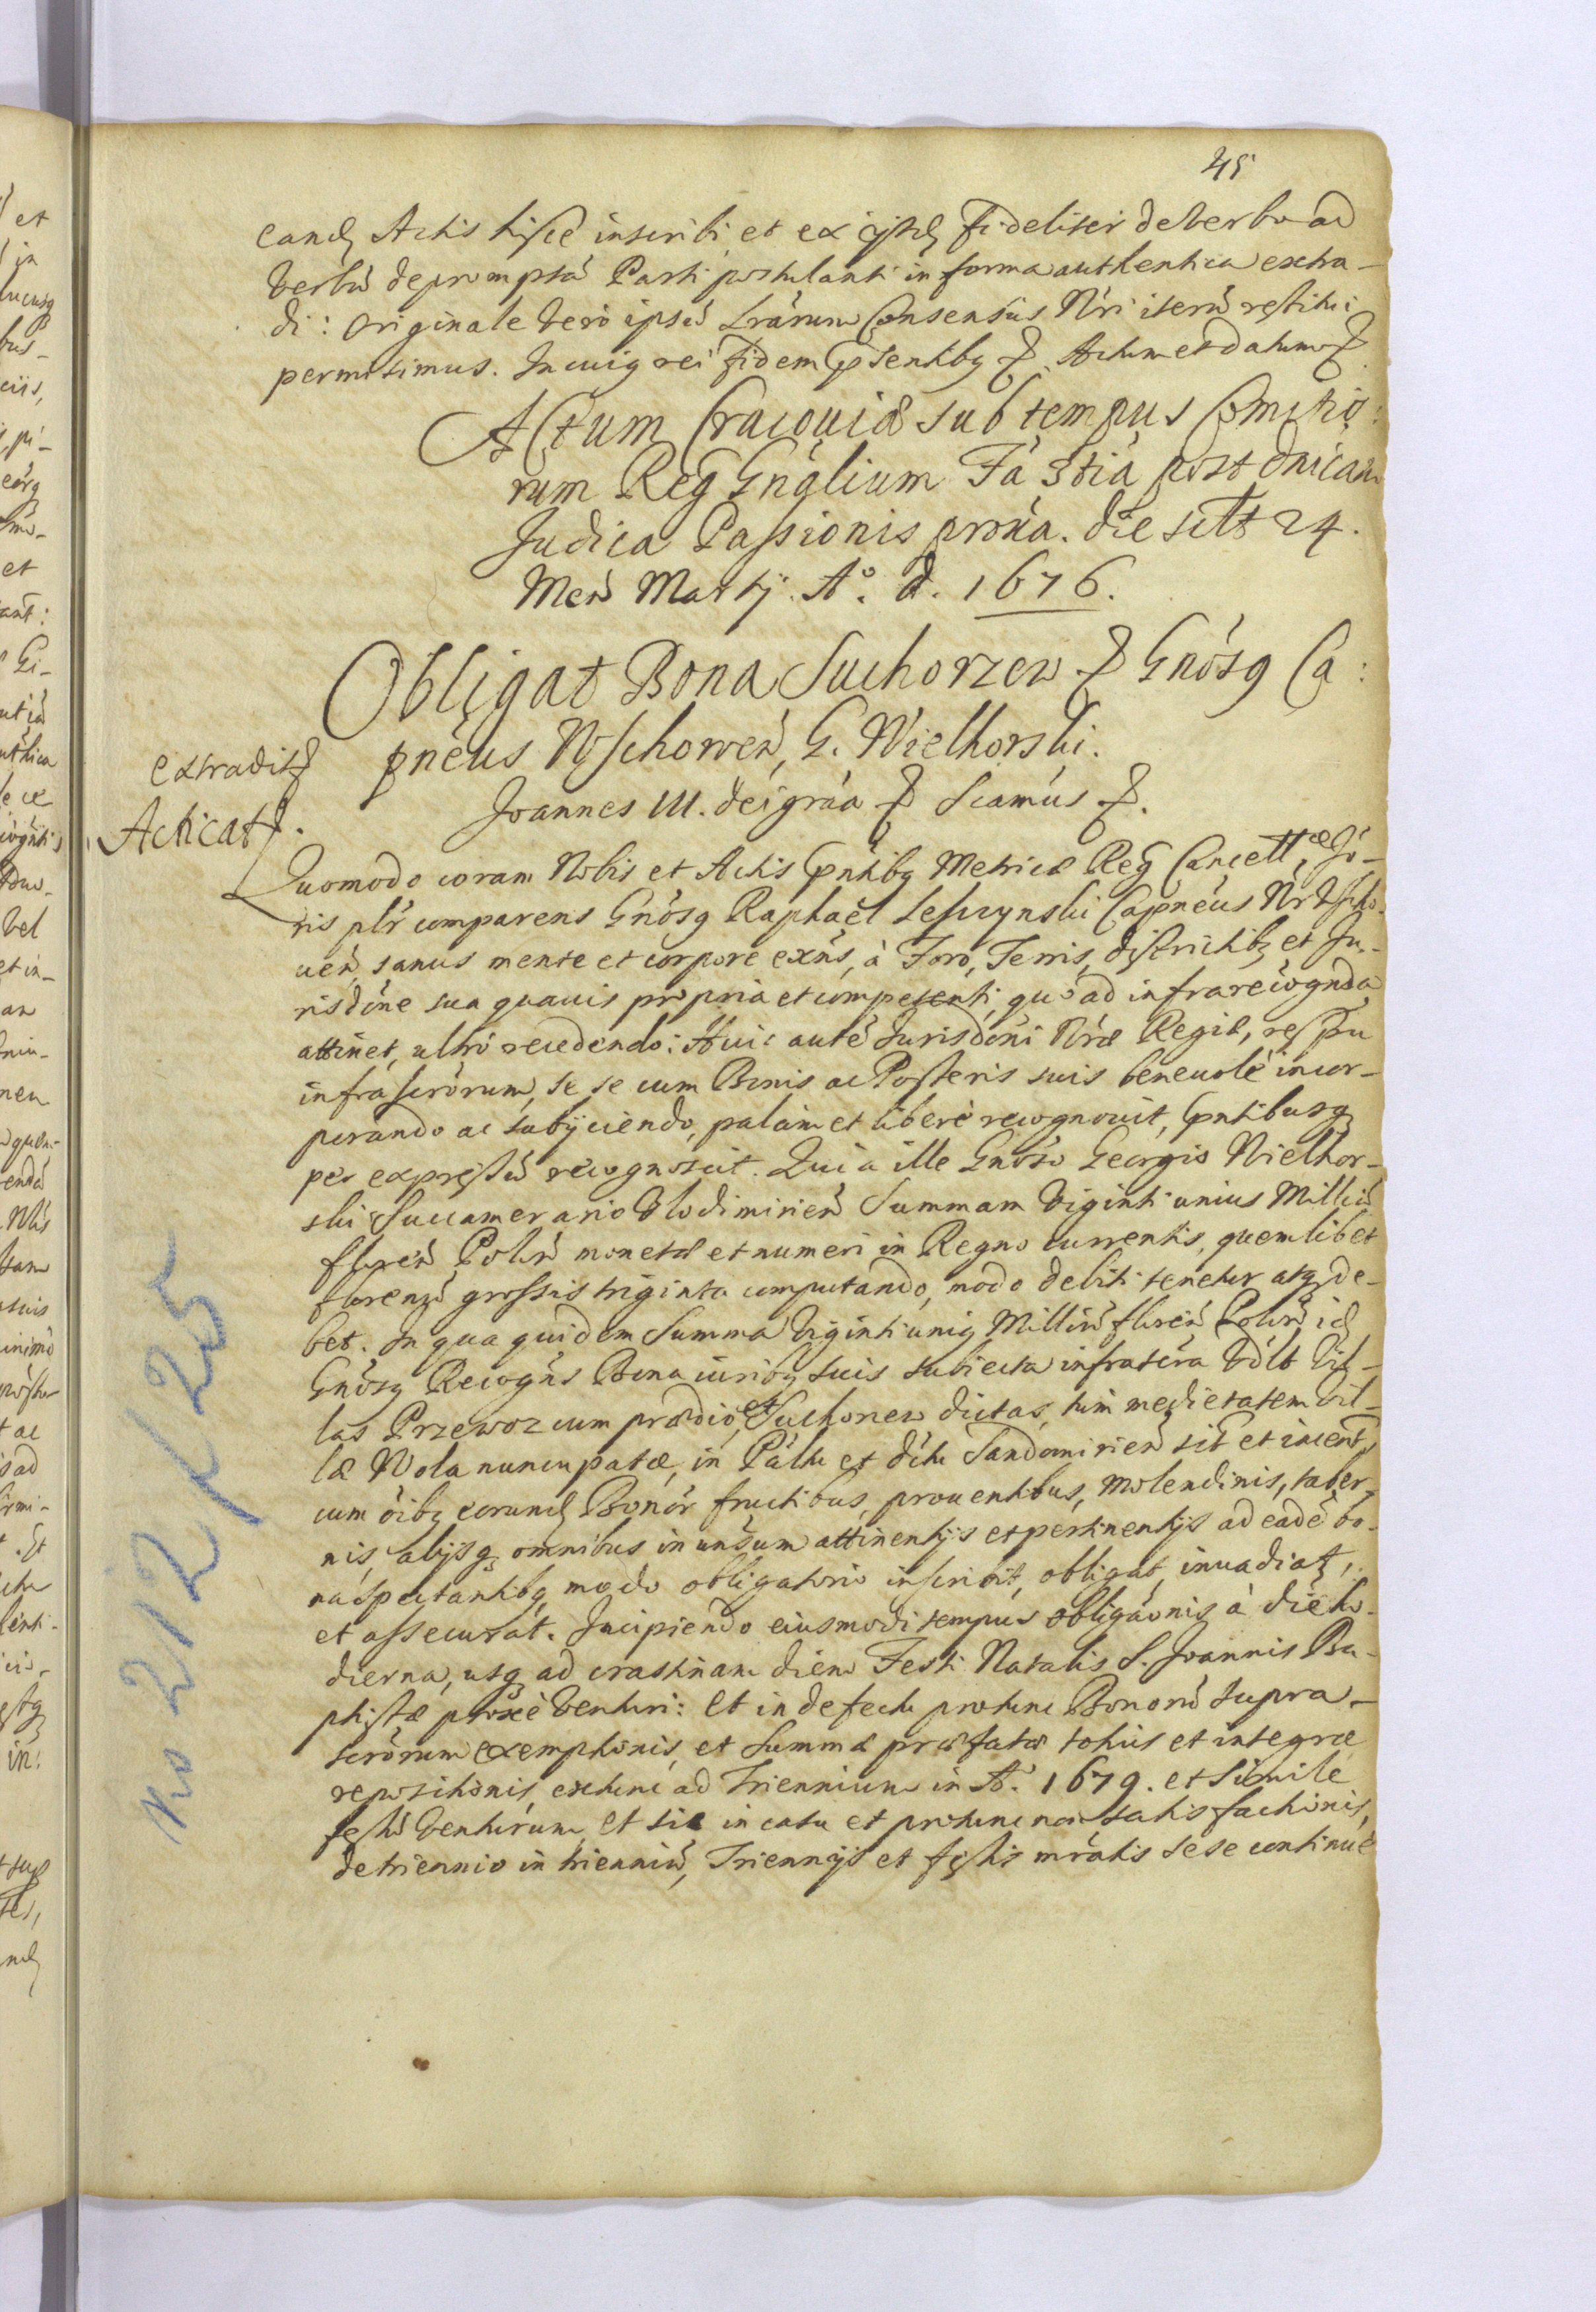 45
eand Actis hisce inscribi et ex ijsd fideliter de verbo ad
verbũ depromptã Parti postulanti in forma authentica extra-
di: Originale vero ipsũ Lrarum Consensus Nri iterũ restitui
permisimus. In cuiq rei fidem Psentibq Actum et datum
Actum Cracoviæ sub tempus Comitio:
rum Reg Gnalium Fa 3tia post dnicam
Judica Passionis proxa. die sclt 24.
Men Martij. Aº. d. 1676.
Obligat Bona Suchorzew Gnosq Ca:
pneus Wschowen, G. Wielhorski.
extradit
Joannes III. dei gráa Scamus
Acticat.
Quomodo coram Nobis et Actis Pntibq Metricæ Reg Cancellæ Jo-
ris plr comparens Gnosq Raphael Leszczynski Capneus Nr Wscho-
uen, sanus mente et corpore exns, à Foro, Terris, districtibq et Ju-
risdóne sua quauis propria et competenti quo ad infra recognda
attinet, ultro recedendo: Huic aute Jurisdoni Nræ Regiæ, respu
infrascrorum, se se cum Bonis ac Posteris suis beneuole incor-
porando ac subijciendo, palam et libere recognouit, Pntibusq
per expressũ recognoscit. Quia ille Gnoso Georgio Wielhor-
ski Succamerario Vlodimirien Summam Viginti unius Milliũ
floren Poln monetæ et numeri in Regno currentis, quemlibet
florenũ grossis triginta computando, modo debiti tenetur atq de-
bet. In qua quidem Summa Viginti uniq Milliũ floren Poln id
Gnosq Recogns Bona iuribq suis subiecta infra tera vdlt Vil-
las Przewoz cum prædio, et Suchorzew dictas, tum medietatem Vil-
læ Wola nuncupatæ, in Pálu et dctu Sandomirien sit et iacent,
cum oibq eorund Bonor fructibus, prouentibus, molendinis, taber-
nis, alijsq omnibus in unsum attinentijs et pertinentijs ad eade bo-
na spectantibq modo obligatorio inscribit, obligat, inuadiat,
et assecurat. Incipiendo eiusmodi tempus obligaonis à die ho-
dierna, usq ad crastinam diem Festi Natalis S. Joannis Ba-
ptistæ proxe venturi: Et in defectu protunc Bonorũ supra-
scrorum exemptionis, et Summæ præfatæ totius et integræ
repositionis, extunc ad Triennium in Aº. 1679. et simile
festũ venturum, et sic in casu et protunc non satisfactionis,
de triennio in trienniũ, Triennijs et festis mratis sese continue
No 212 K 25